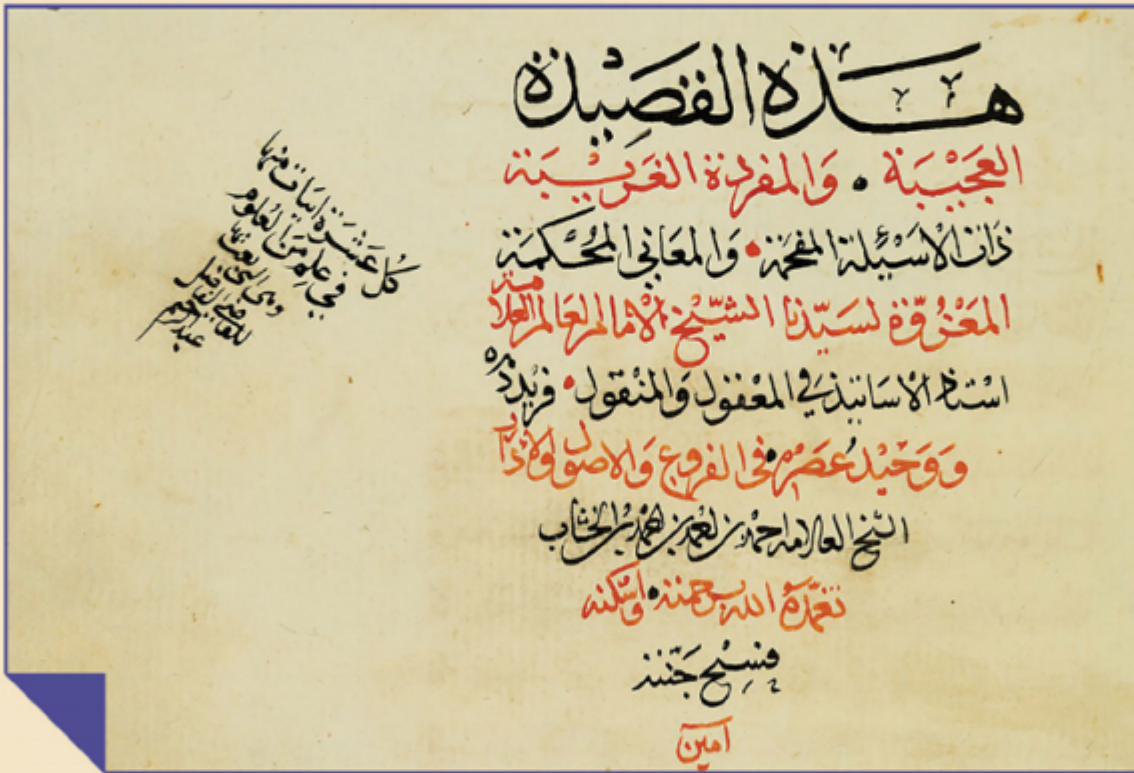 هَذِهِ القَصِيْدَة
العَجِيْبَة • وَالمفردة الغَرِيْبَة
ذات الاَسْئِلة المفحمة • وَالمعَاني المُحْكمَة
المَعْزُوَّة لسَيّدنا الشَّيْخ الامام العَالم العَلامة
استاذ الاساتيذ في المعْقول وَالمنْقول • فَرِيْد دَهره
وَوَحِيْد عَصْرِه في الفروع وَالاصول
الشيخ العالامه احمد بن
تغمّدَهُ الله برحمته • وَاسْكنه
فسِيْح جَنّته
امين
كُل عَشرَة ابيات منها
في عِلم مِنَ العُلوم
للقاضي الفاضل
عبد الرحيم